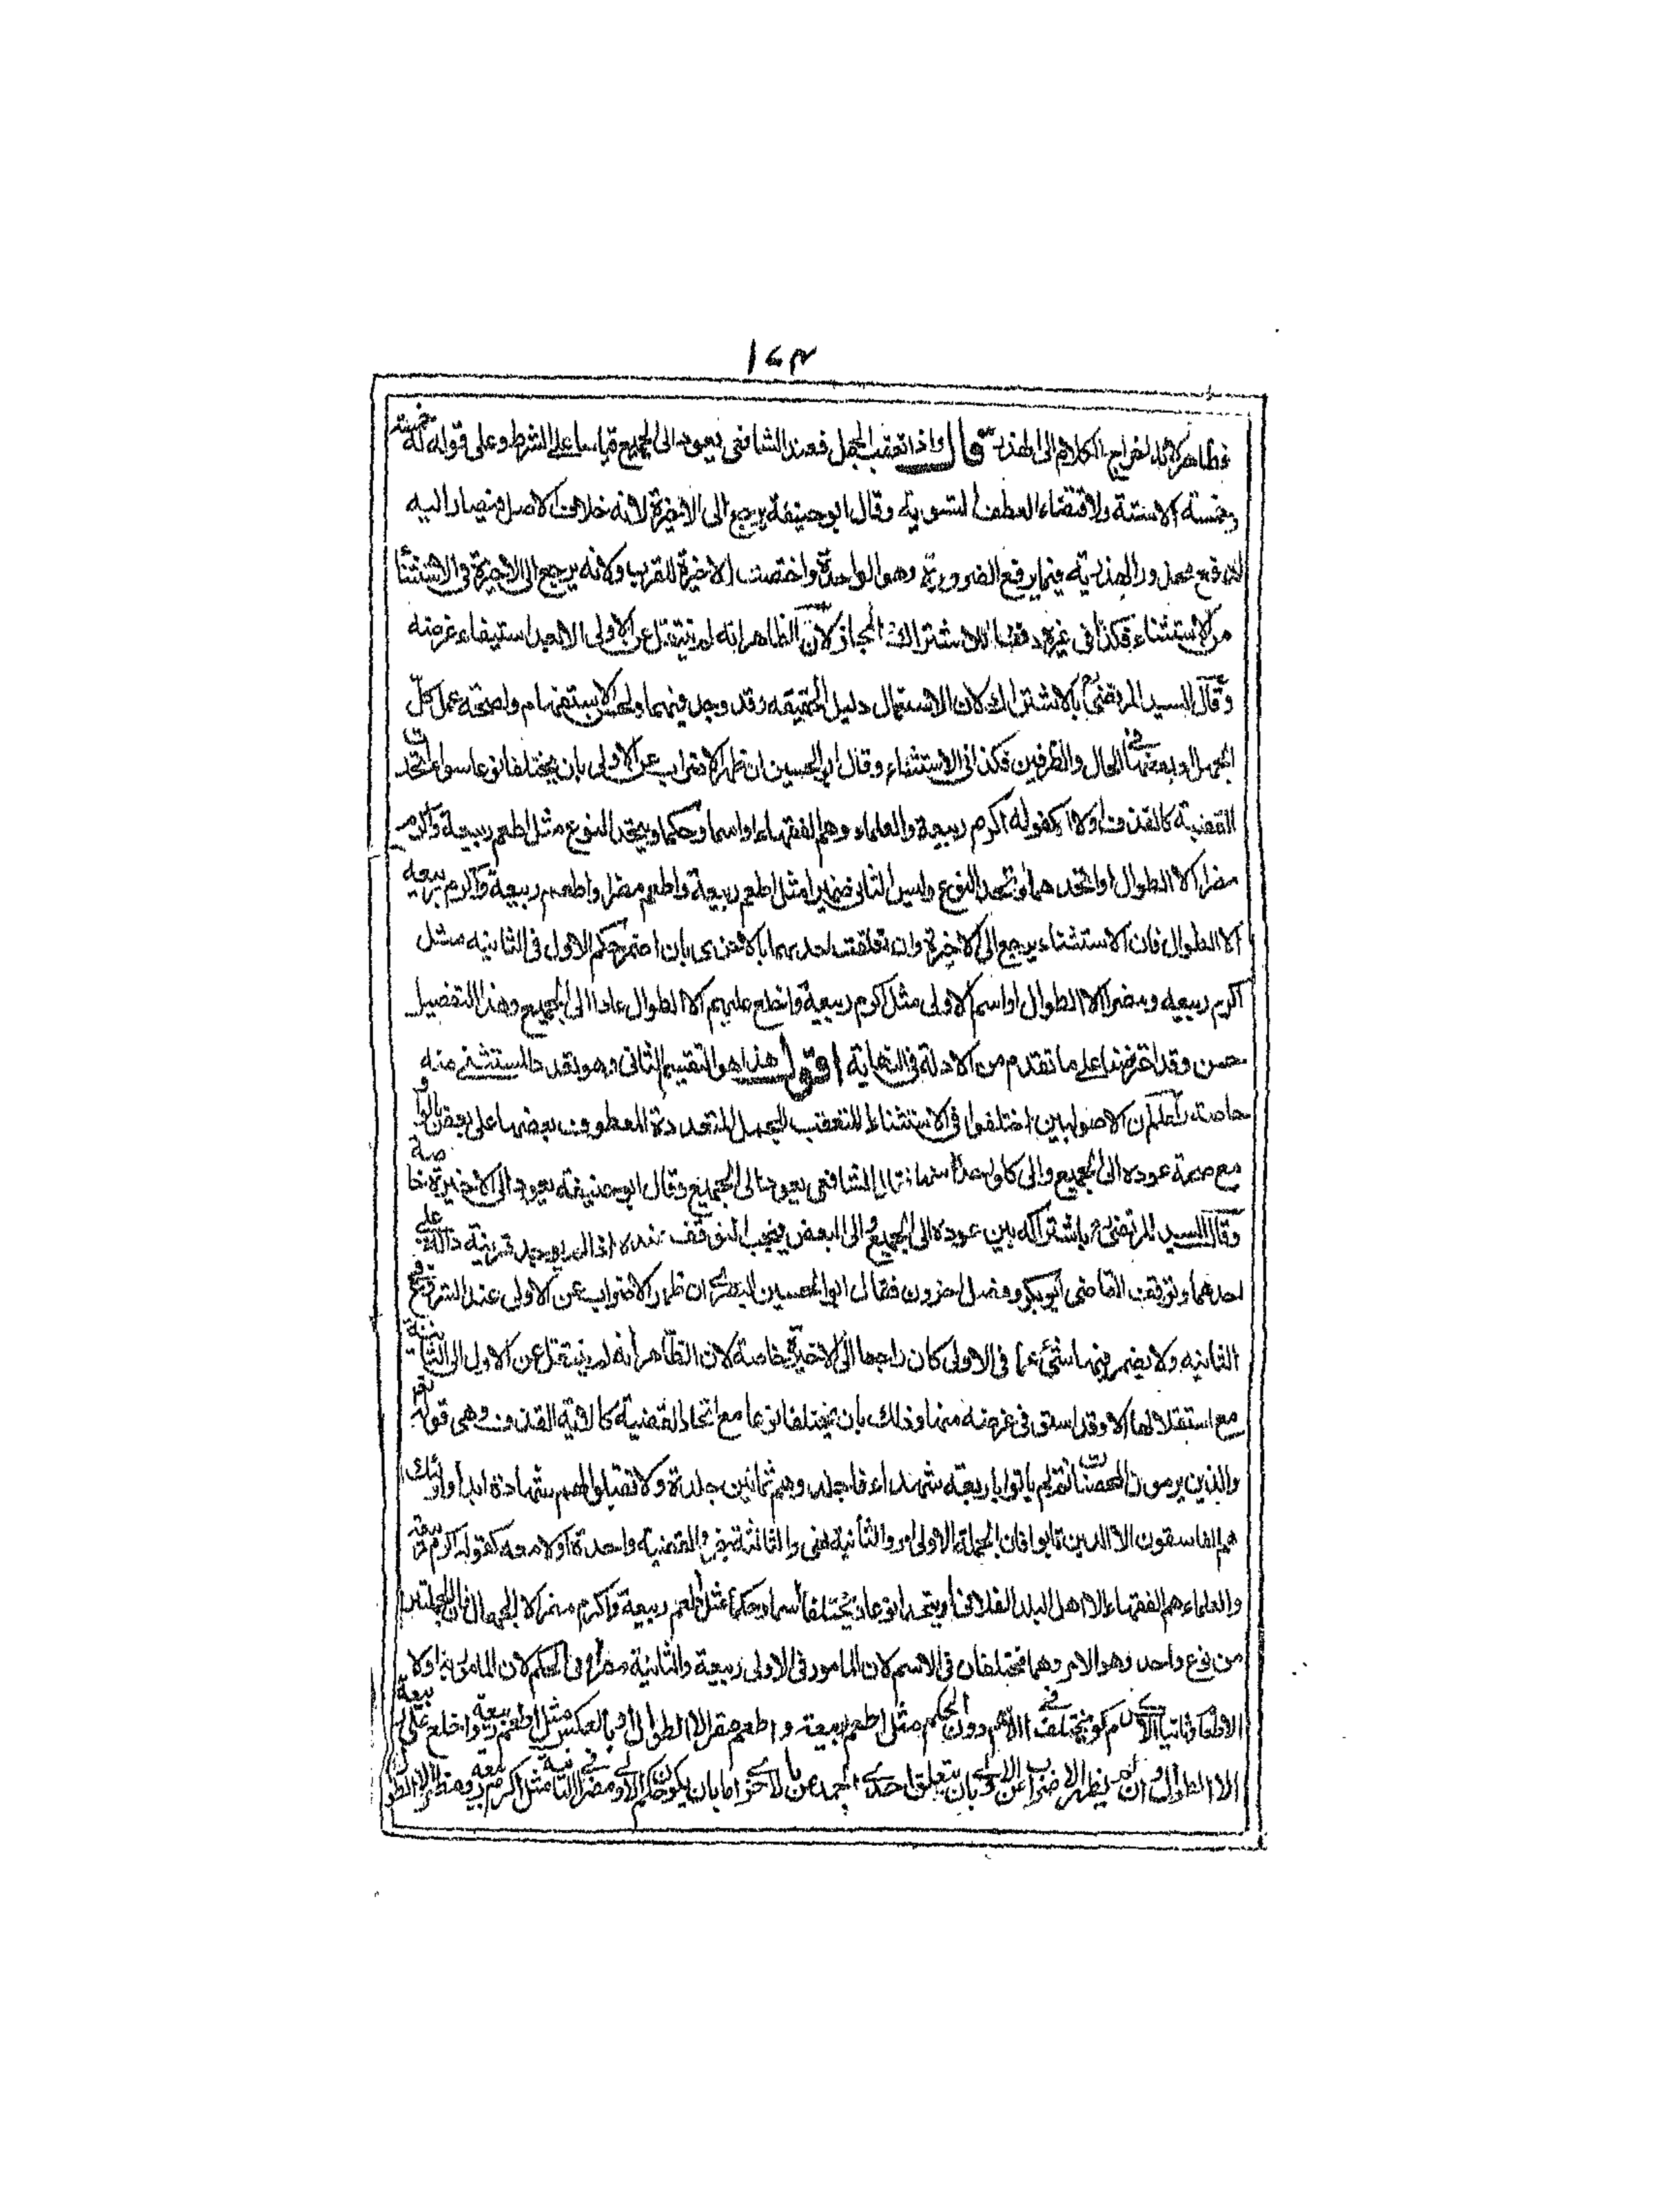 ١٤٣
فظاهر لانه اخراج الكلام الى الهذر قال واذا تعقب الجمل فعند الشافعى يعود الى الجميع قياسا على الشرط وعلى قوله له خمسة
وخمسة الا ستة ولاقتضاء العطف التسوية وقال ابو حنيفة يرجع الى الاخيرة لانه خلاف الاصل فيصار اليه
لدفع محذور الهذرية فيما يرفع الضرورة وهو الواحدة واختصت الاخيرة للقرب ولانه يرجع الى الاخيرة فى الاستثنا
من الاستثناء فكذا فى غيره دفعا للاشتراك والمجاز ولان الظاهر انه لم ينتقل عن الاولى الا بعد استيفاء غرضه
وقال السيد المرتضى بالاشتراك لان الاستعمال دليل الحقيقة وقد وجد فيهما ولحسن الاستفهام ولصحة عمل كل
الجمل او بعضها فى الحال والظرفين فكذا فى الاستثناء وقال ابو الحسين ان ظهر الاضراب عن الاولى بان يختلفا نوعا سواء اتحدت
القضية كالقذف او لا كقوله اكرم ربيعة والعلماء هم الفقهاء او اسما وحكما ويتحد النوع مثل اطعم ربيعة واكرم
مضر الا الطوال او احدهما ويتحد النوع وليس الثانى ضميرا مثل اطعم ربيعة واطعم مضر واطعم ربيعة واكرم ربيعه
الا الطوال فان الاستثناء يرجع الى الاخيرة وان تعلقت احديهما بالاخرى بان اضمر حكم الاول فى الثانيه مثل
اكرم ربيعه ومضر الا الطوال او اسم الاولى مثل اكرم ربيعة واخلع عليهم الا الطوال عاد الى الجميع وهذا التفصيل
حسن وقد اعترضنا على ما تقدم من الادلة فى النهاية اقول هذا هو التقسيم الثانى وهو تعدد المستثنى منه
خاصة واعلم ان الاصوليين اختلفوا فى الاستثناء المتعقب للجمل المتعددة المعطوف بعضها على بعض بالواو
مع صحة عوده الى الجميع والى كل واحدة منها فقال الشافعى يعود الى الجميع وقال ابو حنيفة يعود الى الاخيرة خاصة
وقال السيد المرتضى باشتراكه بين عوده الى الجميع والى البعض فيجب التوقف عنده اذا لم يوجد قرينة دالة على
احدهما وتوقف القاضى ابو بكر وفصل اخرون فقال ابو الحسين البصرى ان ظهر الاضراب عن الاولى عند الشروع فى
الثانيه ولا يضمر فيها شئ مما فى الاولى كان راجعا الى الاخيرة خاصة لان الظاهر انه لم ينتقل عن الاول الى الثانية
مع استقلالها الا وقد استوفى غرضه منها وذلك بان يختلفا نوعا مع اتحاد القضية كالاية القذف وهى قوله تعم
والذين يرمون المحصنات ثم لم ياتوا باربعة شهداء فاجلدوهم ثمانين جلدة ولا تقبلوا لهم شهادة ابدا واولئك
هم الفاسقون الا الذين تابوا فان الجملة الاولى امر والثانية نهى والثالثة خبر والقضية واحدة او لا معه كقوله اكرم ربيعة
والعلماء هم الفقهاء الا اهل البلد الفلانى او يتحد نوعا ويختلفا اسما وحكما مثل اطعم ربيعة واكرم مضر الا الجهال فان الجملتين
من نوع واحد وهو الامر وهما مختلفان فى الاسم لان المامور فى الاولى ربيعة والثانية مضر وفى الحكم لان المامور به اولا
الاطعام وثانيا الاكرام او يختلف فى الاسم دون الحكم مثل اطعم ربيعة واطعم مضر الا الطوال او بالعكس مثل اطعم ربيعة واخلع على ربيعة
الا الطوال وان لم يظهر الاضراب عن الاولى بان يتعلق احدى الجملتين بالاخرى اما بان يكون حكم الاولى مضمرا فى الثانية مثل اكرم ربيعة ومضر الا الطوال